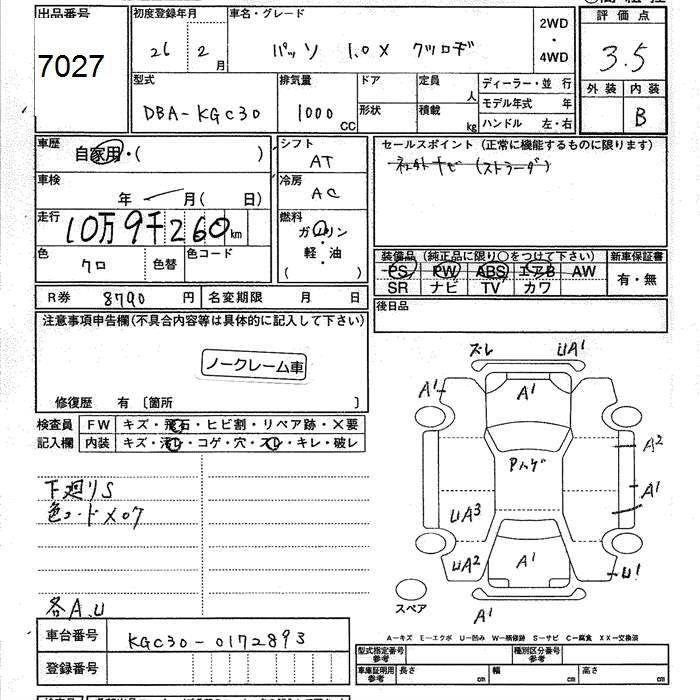 出品番号
7027
初度登録年月
26 年 2 月
車名・グレード
パッソ 1.0X クツロギ
2WD
・
4WD
評価点
3.5
外装 内装
B
型式
DBA-KGC30
排気量
1000 CC
ドア
形状
定員
人
積載
kg
ディーラー・並行
モデル年式 年
ハンドル 左・右
車歴
自家用・( )
シフト
AT
セールスポイント (正常に機能するものに限ります)
ナビ (ストラーダ)
車検
年 月( 日)
冷房
AC
走行
10万9千260km
燃料
ガソリン
・
軽・油
( )
色
クロ
色替
色コード
装備品 (純正品に限り○をつけて下さい)
新車保証書
PS PW ABS エアB AW
有・無
SR ナビ TV カワ
R券 8790 円
名変期限 月 日
後日品
注意事項申告欄(不具合内容等は具体的に記入して下さい)
ノークレーム車
修復歴 有 〔箇所 〕
検査員
記入欄
FW キズ・飛石・ヒビ割・リペア跡・X要
内装 キズ・汚レ・コゲ・穴・スレ・キレ・破レ
下廻りS
色コードX07
各A.U
ズレ
UA1
A1
A1
A2
Pハゲ
A1
UA3
UA2
A1
U1
A1
スペア
A－キズ E－エクボ U－凹み W－補修跡 S－サビ C－腐食 XX－交換済
車台番号
KGC30-0172893
登録番号
型式指定番号
参考
種別区分番号
参考
車庫証明用
参考
長さ cm
幅 cm
高さ cm